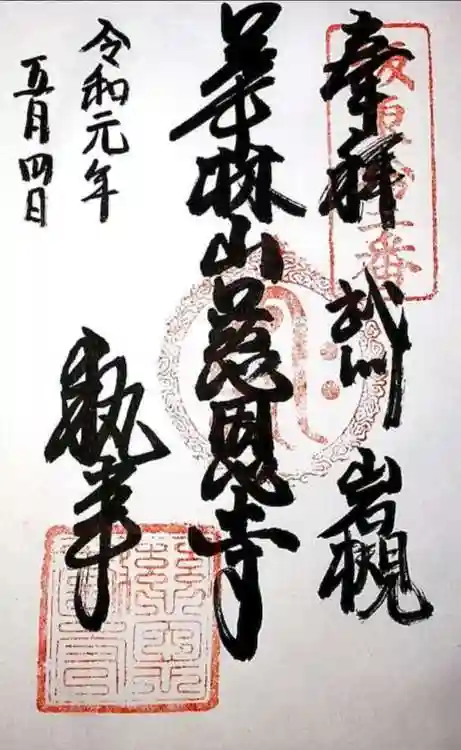 奉拝 武州 岩槻
坂東十二番
華林山慈恩寺
執事
令和元年
五月四日